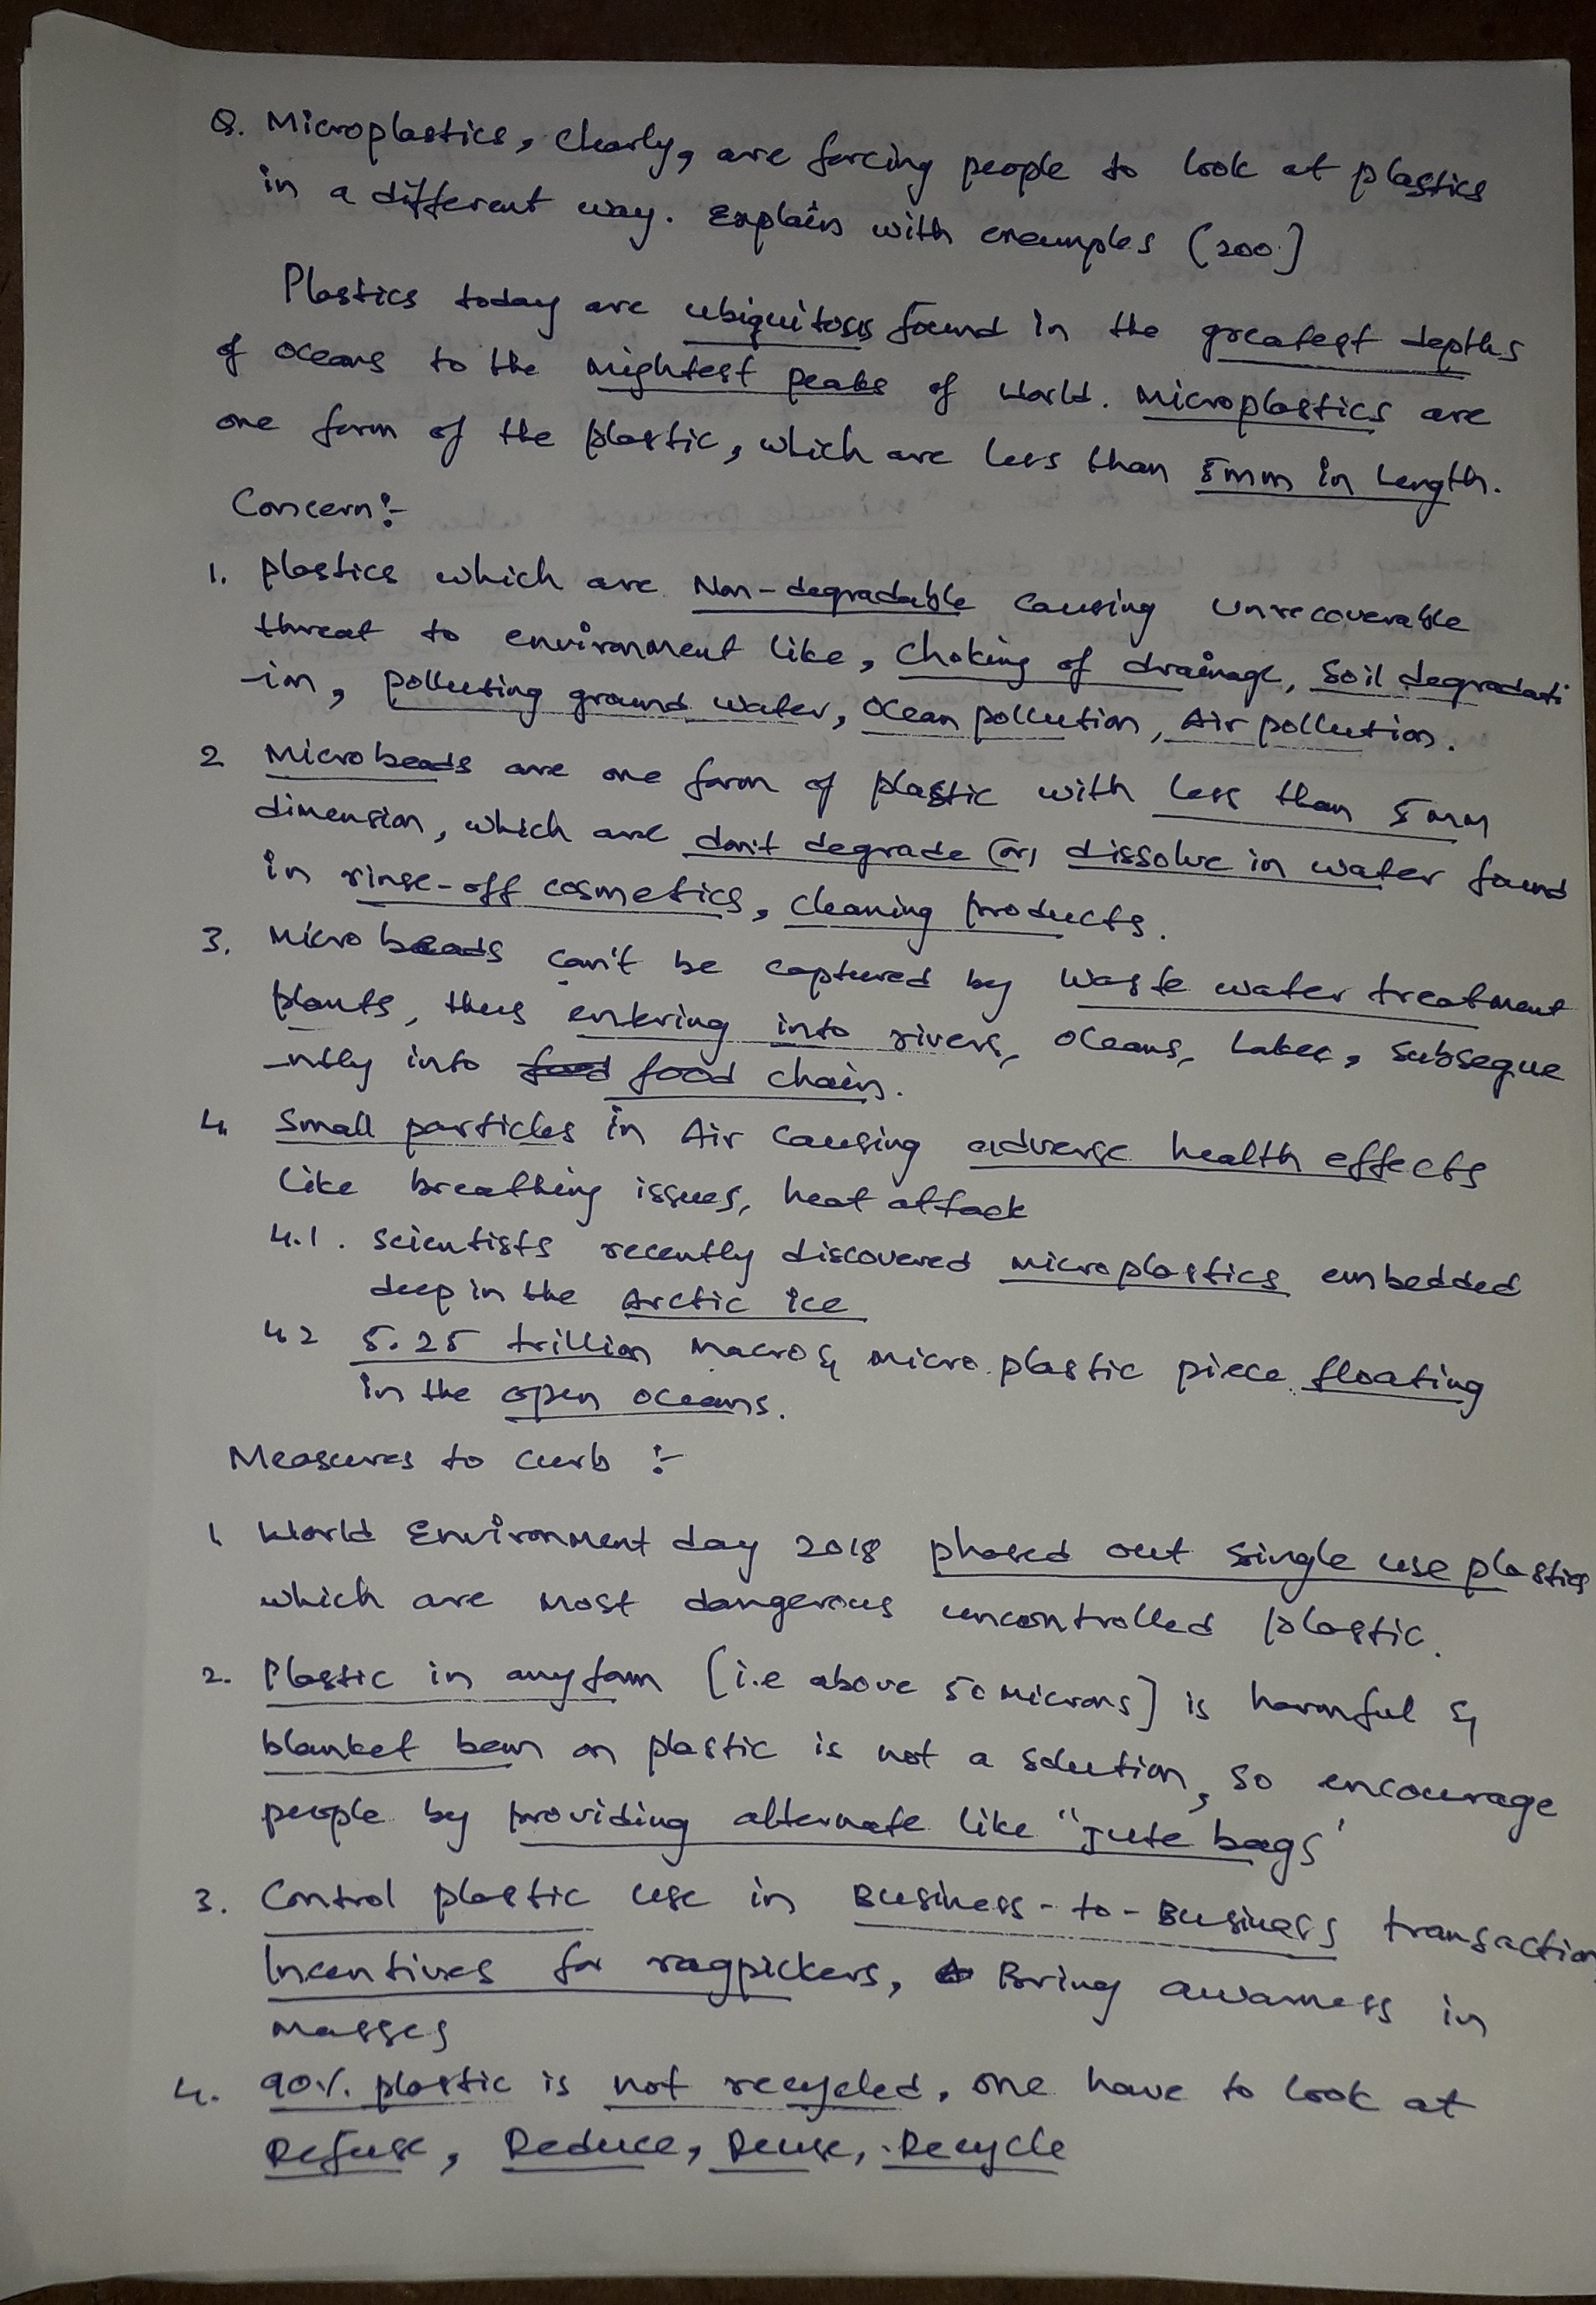 Q. Microplastics, clearly, are forcing people to look at plastics
in a different way. Explain with examples (200]
Plastics today are ubiquitous found in the greatest depths
of oceans to the mightest peaks of World. Microplastics are
one form of the plastic, which are less than 5mm in length.
Concern:-
1. plastics which are Non-degradable causing unrecoverable
threat to environment like, choking of drainage, Soil degradati
-ion, polluting ground water, ocean pollution, Air pollution.
2 Microbeads are one form of plastic with less than 5mm
dimension, which are don't degrade (or) dissolve in water found
in rinse-off cosmetics, cleaning products.
3. Micro beads can't be captured by waste water treatment
plants, thus entering into rivers, oceans, lakes, subseque
-ntly into food food chain.
4. Small particles in Air causing adverse health effects
like breathing issues, heat attack
4.1. Scientists recently discovered microplastics embedded
deep in the Arctic ice
4.2 5.25 trillion macro & micro plastic piece floating
in the open oceans.
Measures to curb :-
1 World Environment day 2018 phased out single use plastics
which are most dangerous uncontrolled plastic.
2. Plastic in any form [i.e above 50 microns] is harmful &
blanket ban on plastic is not a solution, so encourage
people by providing alternate like "jute bags'
3. Control plastic use in Business-to-Business transaction
Incentives for ragpickers, Bring awarness in
masses
4. 90% plastic is not recycled, one have to look at
Refuse, Reduce, Reuse, Recycle